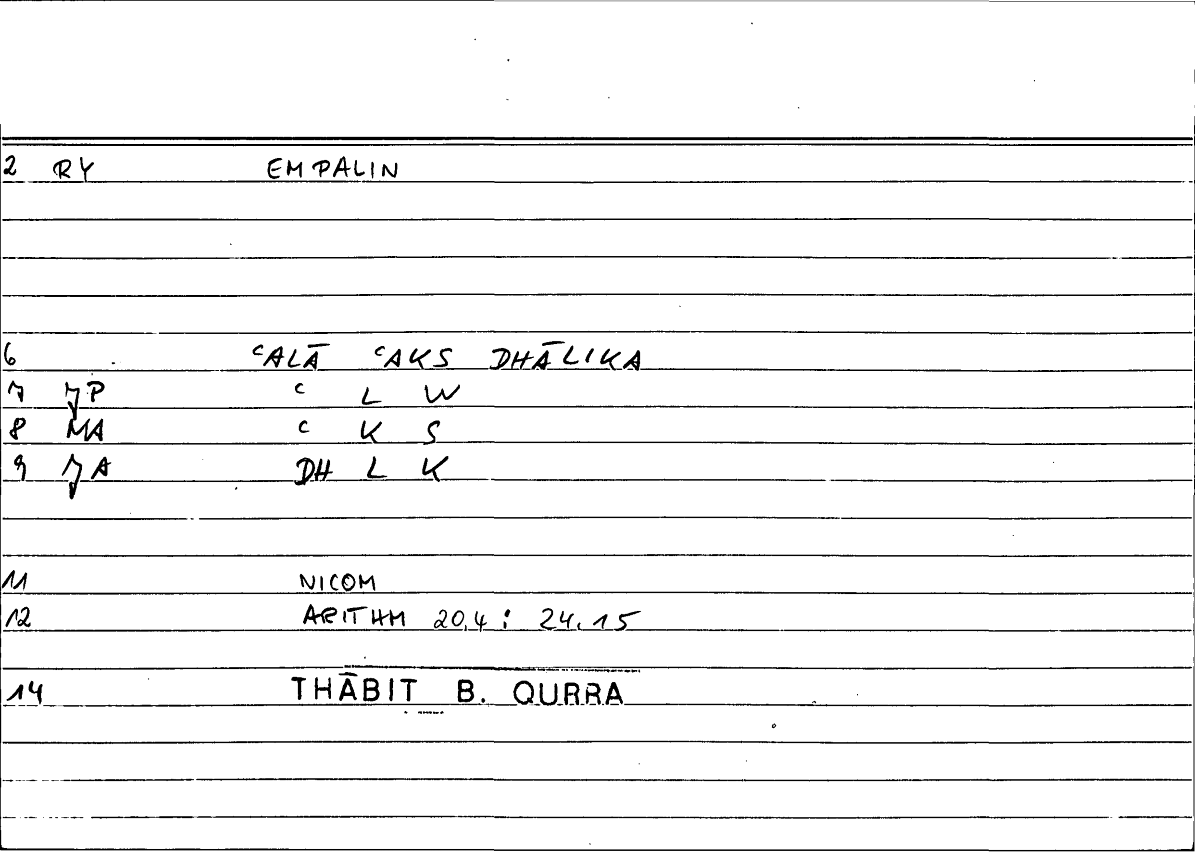 2 RY EMPALIN
6 ᶜALĀ ᶜAKS DHĀLIKA
7 JP ᶜ L W
8 MA ᶜ K S
9 JA DH L K
11 NICOM
12 ARITHM 20,4 : 24.15
14 THĀBIT B. QURRA